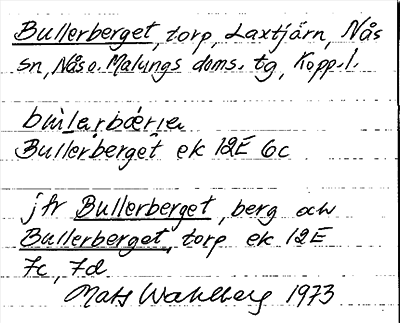 Bullerberget, torp, Laxtjärn, Nås
sn, Nås o. Malungs doms. tg, Kopp. l.
bùlarbæ̀rjə
Bullerberget ek 12E 6c
jfr Bullerberget, berg och
Bullerberget, torp ek 12E
7c, 7d
Mats Wahlberg 1973